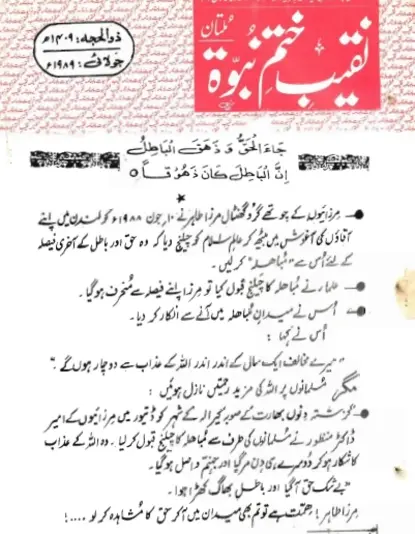 ذوالحجہ: ۱۴۰۹ھ
جولائی: ۱۹۸۹ء
نقیبِ ختمِ نبوّۃ
مُلتان
جَاءَ الْحَقُّ وَ ذَهَقَ الْبَاطِلُ
اِنَّ الْبَاطِلَ كَانَ ذَهُوْقًا ۝
● مرزائیوں کے چوتھے گروگھنٹال مرزا طاہر نے ۱۰ جون ۱۹۸۸ء کو لندن میں اپنے
آقاؤں کی آغوش میں بیٹھ کر عالمِ اسلام کو چیلنج دیا کہ وہ حق اور باطل کے آخری فیصلہ
کے لئے اُس سے "مُباھلہ" کرلیں۔
● علماء نے مُباھلہ کا چیلنج قبول کیا تو مرزا اپنے فیصلہ سے مُنحرف ہوگیا۔
● اُس نے میدانِ مُباھلہ میں آنے سے انکار کر دیا۔
اُس نے کہا:
"میرے مخالف ایک سال کے اندر اندر اللہ کے عذاب سے دوچار ہوں گے"
مگر مُسلمانوں پر اللہ کی مزید رحمتیں نازل ہوئیں:
● گزشتہ دنوں بھارت کے صوبہ کیرالہ کے شہر کوڈیتور میں مرزائیوں کے امیر
ڈاکٹر منظور نے مُسلمانوں کی طرف سے مُباھلہ کا چیلنج قبول کرلیا۔ وہ اللہ کے عذاب
کا شکار ہو کر دوسرے ہی دن مرگیا اور جہنّم واصل ہوگیا۔
"بے شک حق آگیا اور باطل بھاگ کھڑا ہوا۔
مرزا طاہر! ہمّت ہے تو تم بھی میدان میں آکر حق کا مُشاہدہ کر لو ....!